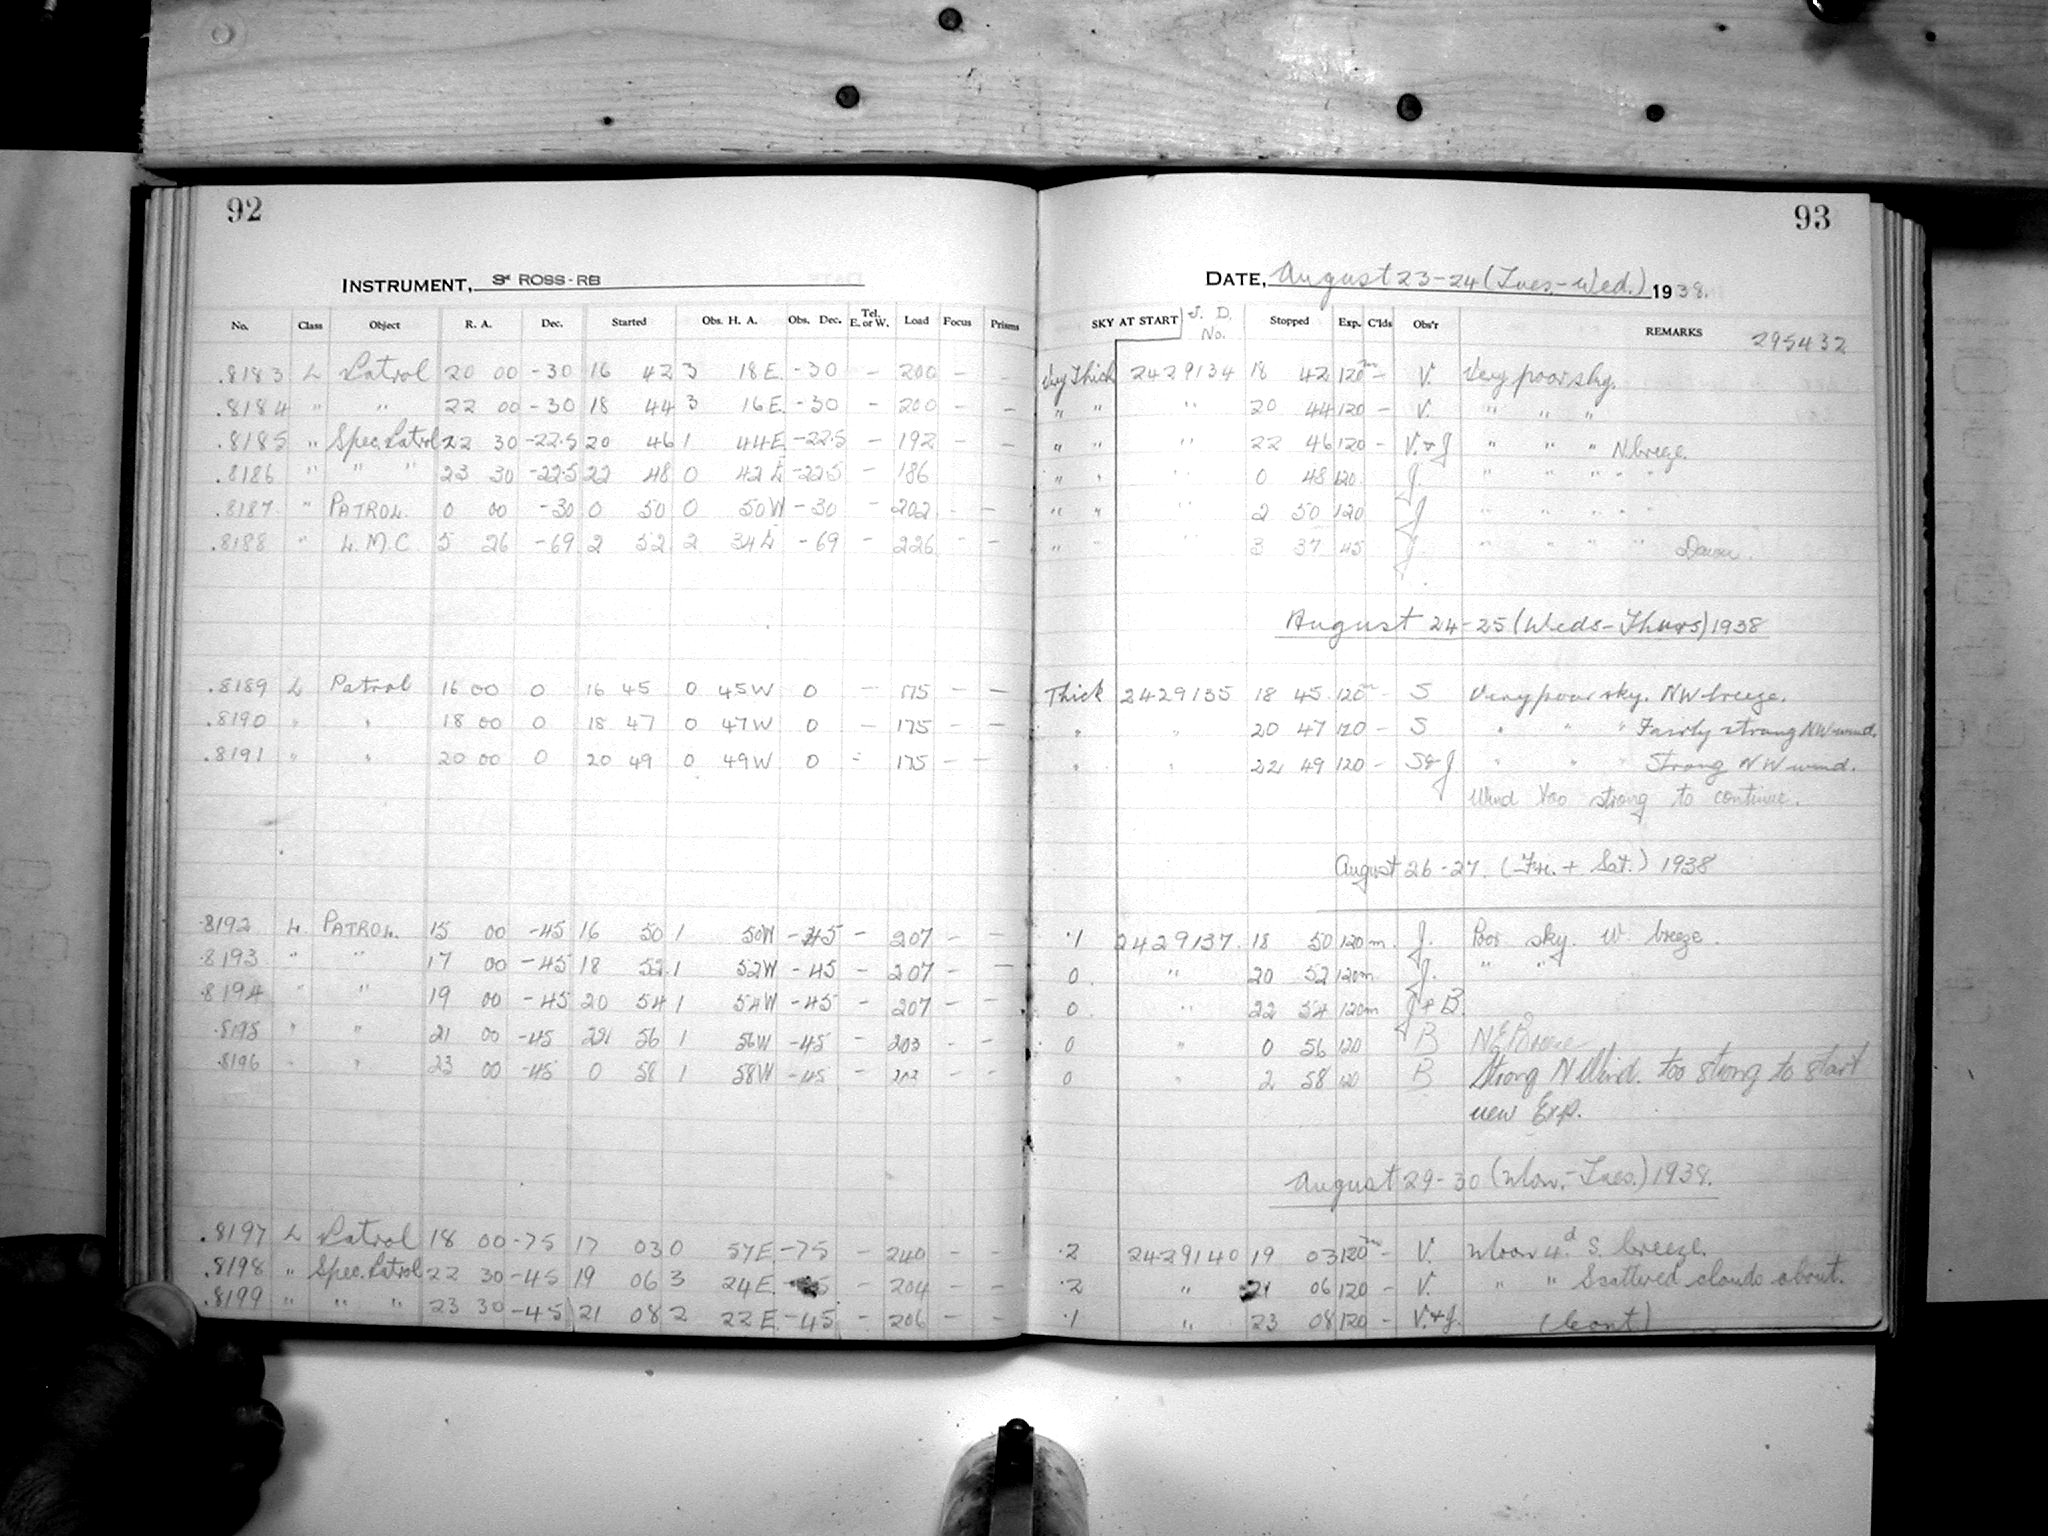 92
INSTRUMENT, 3" ROSS-RB
No. Class Object R. A. Dec. Started Obs. H. A. Obs. Dec. Tel. E. or W. Load Focus Prisms
.8183 L Patrol 20 00 -30 16 42 3 18 E. -30 - 200 - -
.8184 " " 22 00 -30 18 44 3 16 E. -30 - 200 - -
.8185 " Spec. Patrol 22 30 -22.5 20 46 1 44 E. -22.5 - 192 - -
.8186 " " " 23 30 -22.5 22 48 0 42 E -22.5 - 186
.8187 " PATROL. 0 00 -30 0 50 0 50 W -30 - 202 - -
.8188 " L.M.C 5 26 -69 2 52 2 34 E -69 - 226 - -
.8189 L Patrol 16 00 0 16 45 0 45 W 0 - 175 - -
.8190 " " 18 00 0 18 47 0 47 W 0 - 175 - -
.8191 " " 20 00 0 20 49 0 49 W 0 - 175 - -
.8192 L. PATROL. 15 00 -45 16 50 1 50 W -45 - 207 - -
.8193 " " 17 00 -45 18 52 1 52 W -45 - 207 - -
.8194 " " 19 00 -45 20 54 1 54 W -45 - 207 - -
.8195 " " 21 00 -45 22 56 1 56 W -45 - 203 - -
.8196 " " 23 00 -45 0 58 1 58 W -45 - 203 - -
.8197 L Patrol 18 00 -75 17 03 0 57 E. -75 - 240 - -
.8198 " Spec. Patrol 22 30 -45 19 06 3 24 E. - 204 - -
.8199 " " " 23 30 -45 21 08 2 22 E. -45 - 206 - -
93
DATE, August 23-24 (Tues.-Wed.) 1938.
SKY AT START J. D. No. Stopped Exp. C'lds Obs'r REMARKS 295432
Very Thick 2429134 18 42 120m - V. Very poor sky.
" " " 20 44 120 - V. " " "
" " " 22 46 120 - V. & J " " " N. breeze.
" " " 0 48 120 J. " " " " "
" " " 2 50 120 J " " " " "
" " " 3 37 45 J. " " " " Dawn.
August 24-25 (Weds-Thurs) 1938
Thick 2429135 18 45 120m - S Very poor sky. NW breeze.
" " 20 47 120 - S " " " Fairly strong NW wind.
" " 22 49 120 - S & J " " " Strong NW wind.
Wind too strong to continue.
August 26-27. (Fri. + Sat.) 1938
.1 2429137. 18 50 120m. J. Poor sky. W. breeze.
0. " 20 52 120m J. " "
0. " 22 54 120m J & B.
0 " 0 56 120 B N E Breeze
0 " 2 58 120 B Strong N Wind. too strong to start
new Exp.
August 29-30 (Mon.-Tues.) 1938.
.2 2429140 19 03 120m - V. Moon 4d. S. breeze.
.2 " 21 06 120 - V. " " Scattered clouds about.
.1 " 23 08 120 - V. & J. (Cont)